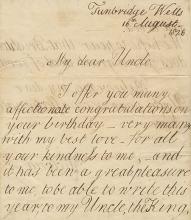 Tunbridge Wells
16th August.
My dear Uncle
I offer you many
affectionate congratulations on
your birthday – very many
with my best love – for all
your kindness to me, – and
it has been a great pleasure
to me, to be able to write this
year, to my Uncle, the King